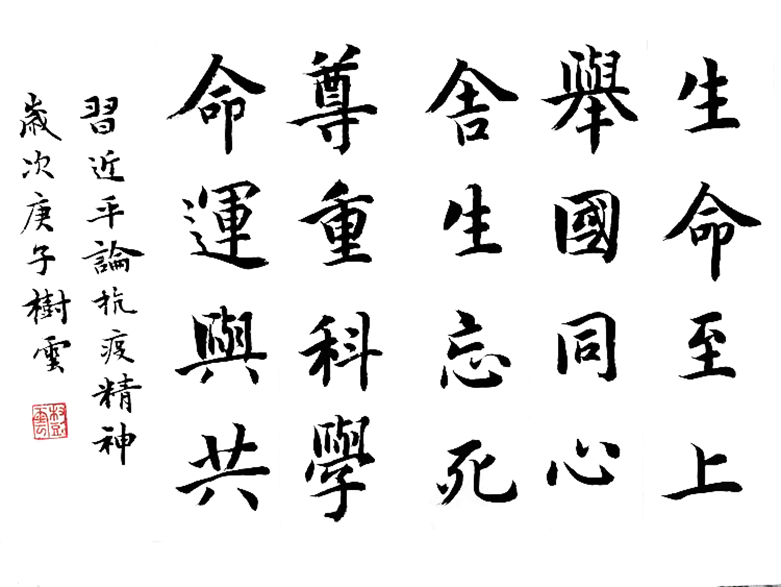 生命至上
舉國同心
舍生忘死
尊重科學
命運與共
習近平論抗疫精神
歲次庚子樹雲
樹雲